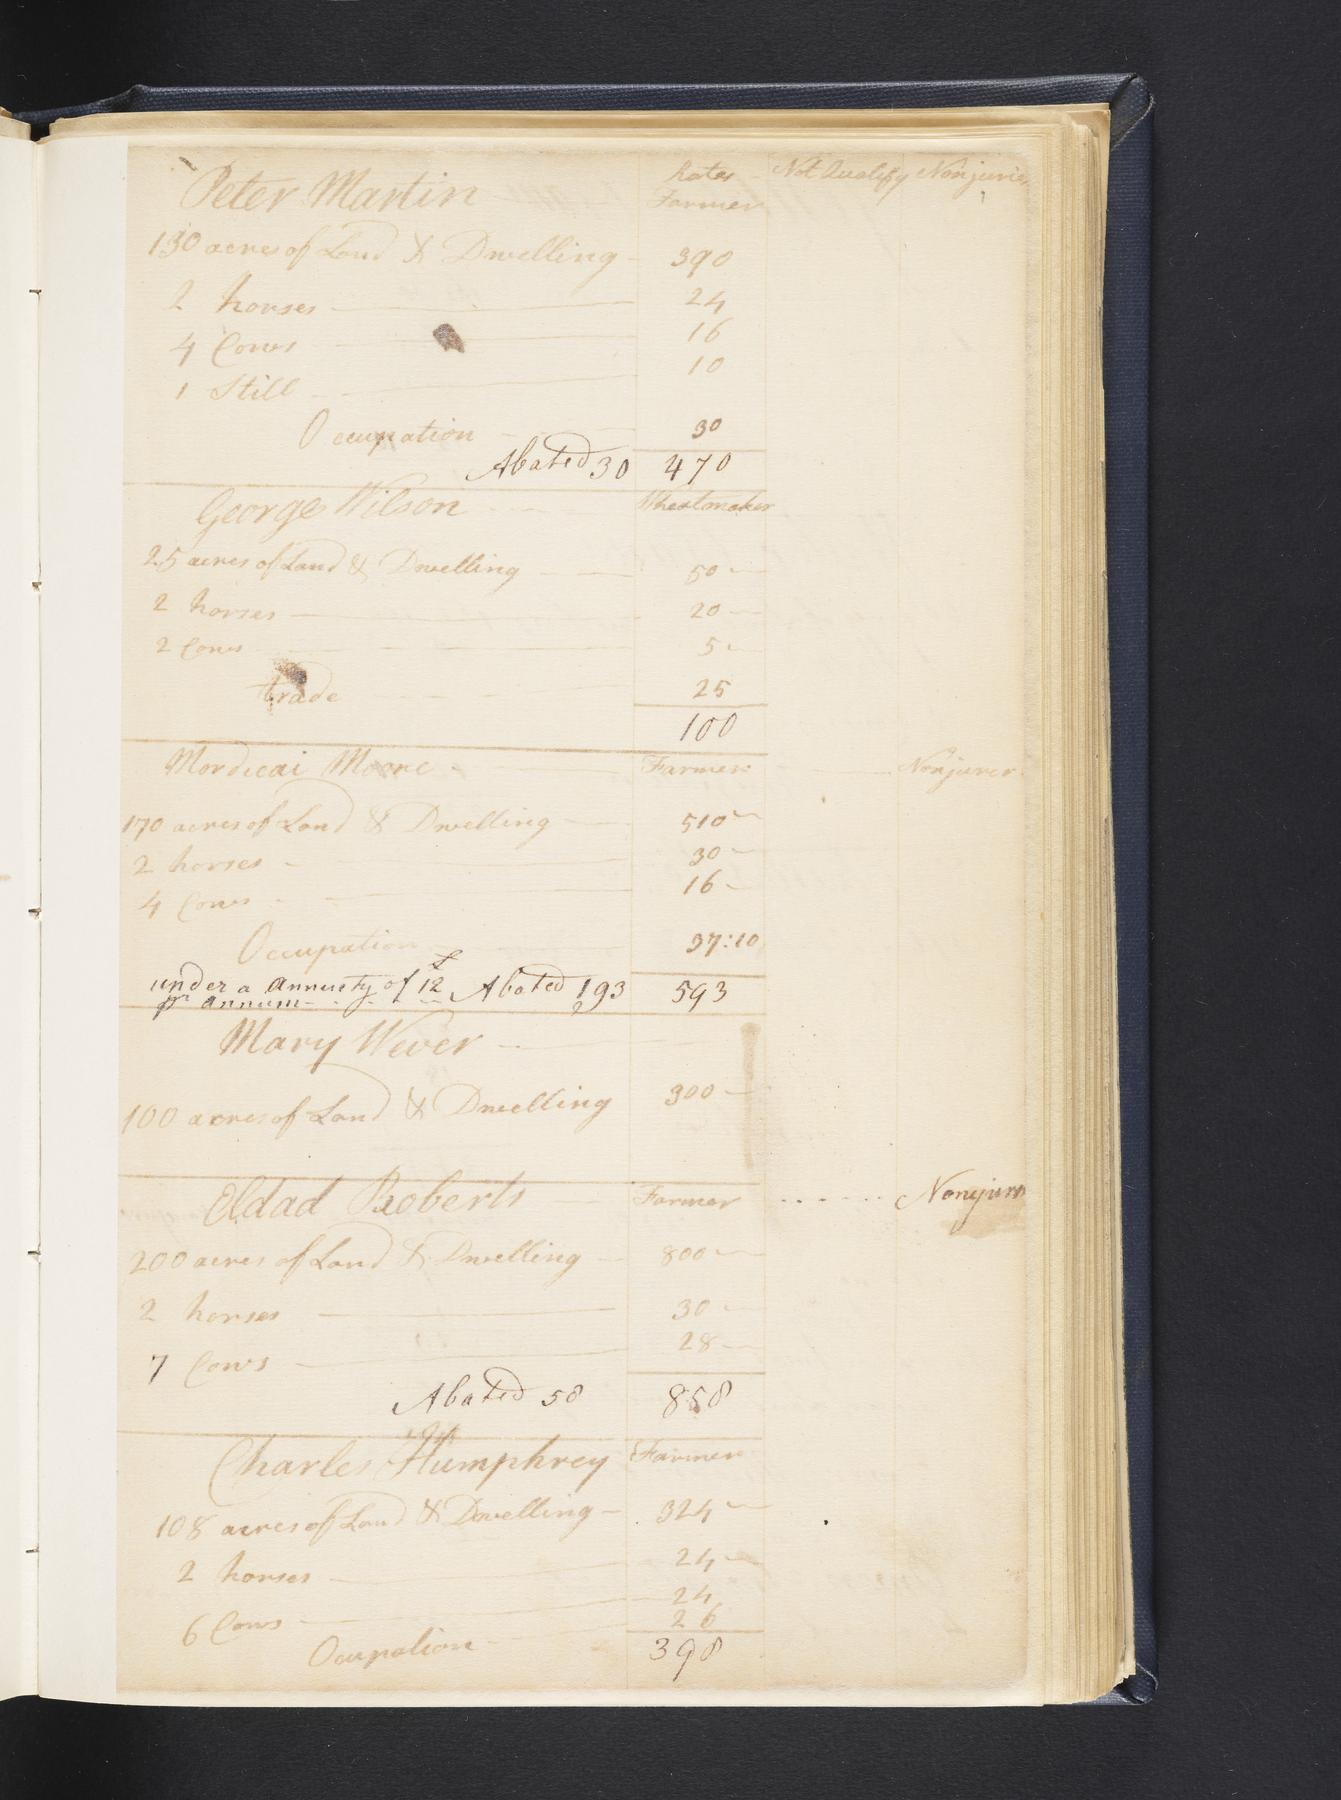 Peter Martin Rates Not Qualify Nonjurie
Farmer
130 acres of Land & Dwelling 390
2 horses 24
4 Cows 16
1 Still 10
Occupation 30
Abated 30 470
George Wilson Wheatmaker
25 acres of Land & Dwelling 50
2 horses 20
2 Cows 5
trade 25
100
Mordicai Moore Farmer Nonjurer
170 acres of Land & Dwelling 510
2 horses 30
4 Cows 16
Occupation 37:10
under a Annuety of £12 Abated 193 593
pr annum
Mary Wever
100 acres of Land & Dwelling 300
Eldad Roberts Farmer Nonjurr
200 acres of Land & Dwelling 800
2 horses 30
7 Cows 28
Abated 58 858
Charles Humphrey Farmer
108 acres of Land & Dwelling 324
2 horses 24
6 Cows 24
Ocupation 26
398